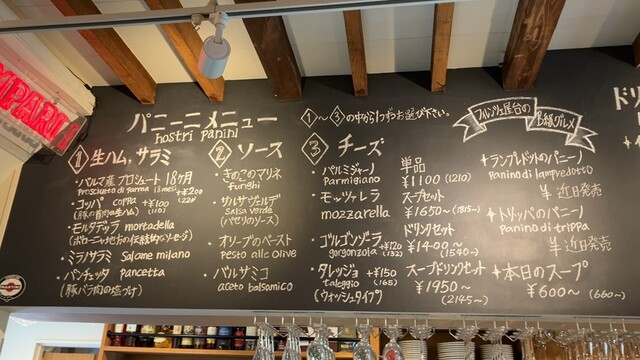 MPARI
パニーニメニュー
nostri panini
1 生ハム, サラミ
・パルマ産プロシュート 18ヶ月
Prosciutto di parma 18 mesi +¥200
(220)
・コッパ coppa +¥100
(豚の首肉の生ハム) (110)
・モルタデッラ mortadella
(ボローニャ地方の伝統的なソセージ)
・ミラノサラミ Salame milano
・パンチェッタ pancetta
(豚バラ肉の塩づけ)
2 ソース
・きのこのマリネ
funghi
・サルサヴェルデ
Salsa verde
(パセリのソース)
・オリーブのペースト
pesto alle olive
・バルサミコ
aceto balsamico
①〜③の中から1つずつお選び下さい。
3 チーズ
・パルミジャーノ
Parmigiano
・モッツァレラ
mozzarella
・ゴルゴンゾーラ +¥120
gorgonzola (132)
・タレッジョ +¥150
taleggio (165)
(ウォッシュタイプ)
単品
¥1100 (1210)
スープセット
¥1650〜 (1815〜)
ドリンクセット
¥1400〜
(1540〜)
スープドリンクセット
¥1950〜
(2145〜)
フィレンツェ屋台の
B級グルメ
ランプレドットのパニーノ
Panino di lampredotto
¥ 近日発売
トリッパのパニーノ
Panino di trippa
¥ 近日発売
本日のスープ
¥600〜 (660〜)
ドリ